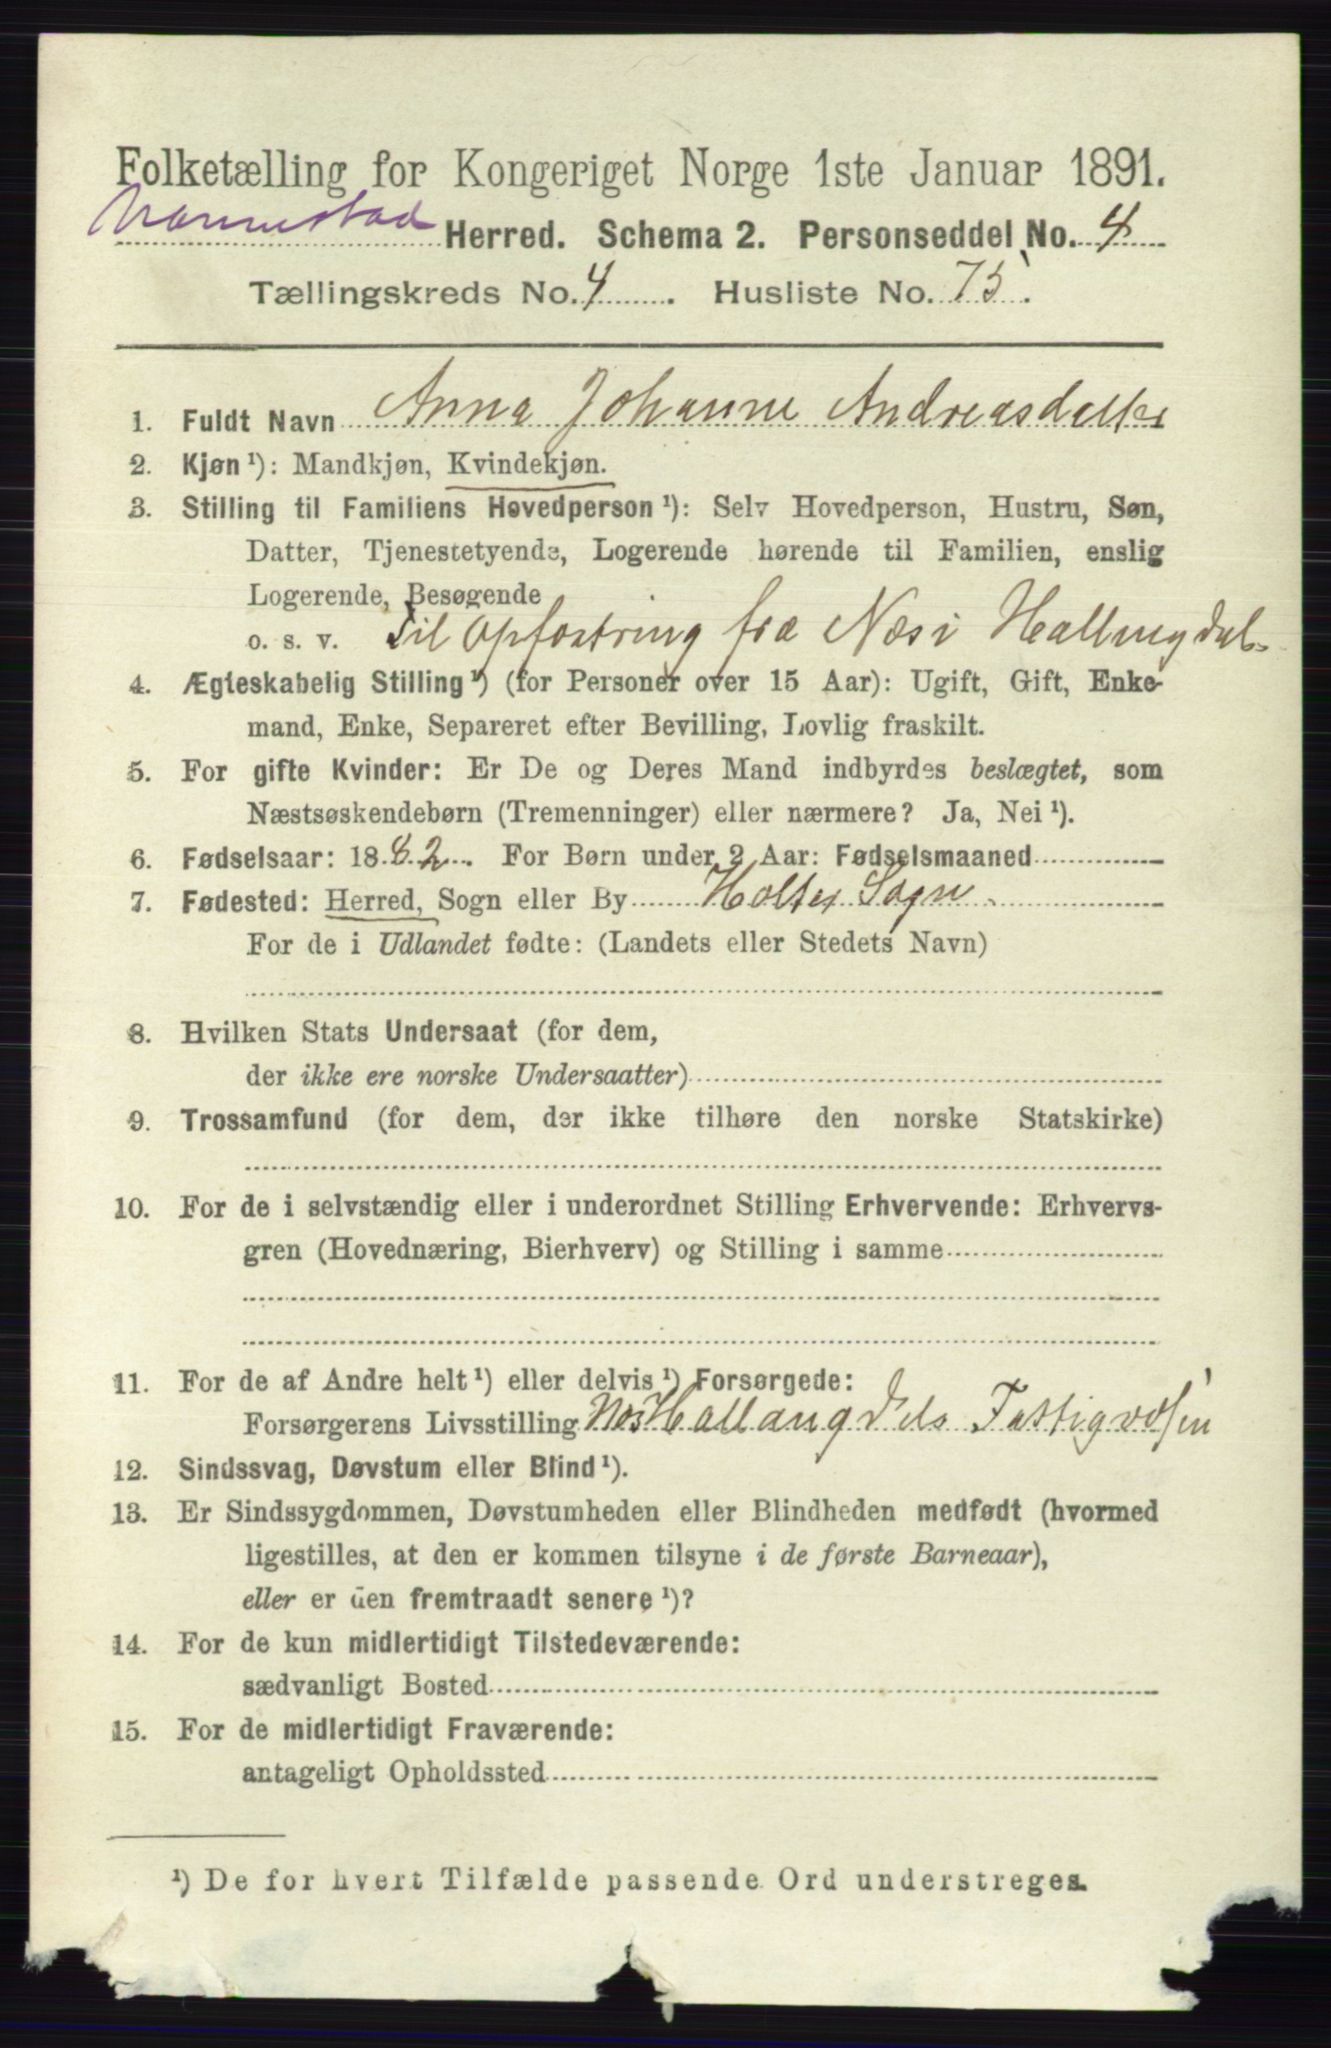 Folketælling for Kongeriget Norge 1ste Januar 1891.
Nannestad Herred. Schema 2. Personseddel No. 4
Tællingskreds No. 4. Husliste No. 75.
1. Fuldt Navn Anna Johanne Andreasdatter
2. Kjøn ¹): Mandkjøn, Kvindekjøn.
3. Stilling til Familiens Hovedperson ¹): Selv Hovedperson, Hustru, Søn,
Datter, Tjenestetyende, Logerende hørende til Familien, enslig
Logerende, Besøgende
o. s. v. Til Opfostring fra Næs i Hallingdal
4. Ægteskabelig Stilling ¹) (for Personer over 15 Aar): Ugift, Gift, Enke-
mand, Enke, Separeret efter Bevilling, Lovlig fraskilt.
5. For gifte Kvinder: Er De og Deres Mand indbyrdes beslægtet, som
Næstsøskendebørn (Tremenninger) eller nærmere? Ja, Nei ¹).
6. Fødselsaar: 1882. For Børn under 2 Aar: Fødselsmaaned
7. Fødested: Herred, Sogn eller By Holter Sogn.
For de i Udlandet fødte: (Landets eller Stedets Navn)
8. Hvilken Stats Undersaat (for dem,
der ikke ere norske Undersaatter)
9. Trossamfund (for dem, der ikke tilhøre den norske Statskirke)
10. For de i selvstændig eller i underordnet Stilling Erhvervende: Erhvervs-
gren (Hovednæring, Bierhverv) og Stilling i samme
11. For de af Andre helt ¹) eller delvis ¹) Forsørgede:
Forsørgerens Livsstilling Næs Hallangdels Fattigvæsen
12. Sindssvag, Døvstum eller Blind ¹).
13. Er Sindssygdommen, Døvstumheden eller Blindheden medfødt (hvormed
ligestilles, at den er kommen tilsyne i de første Barneaar),
eller er den fremtraadt senere ¹)?
14. For de kun midlertidigt Tilstedeværende:
sædvanligt Bosted
15. For de midlertidigt Fraværende:
antageligt Opholdssted
¹) De for hvert Tilfælde passende Ord understreges.